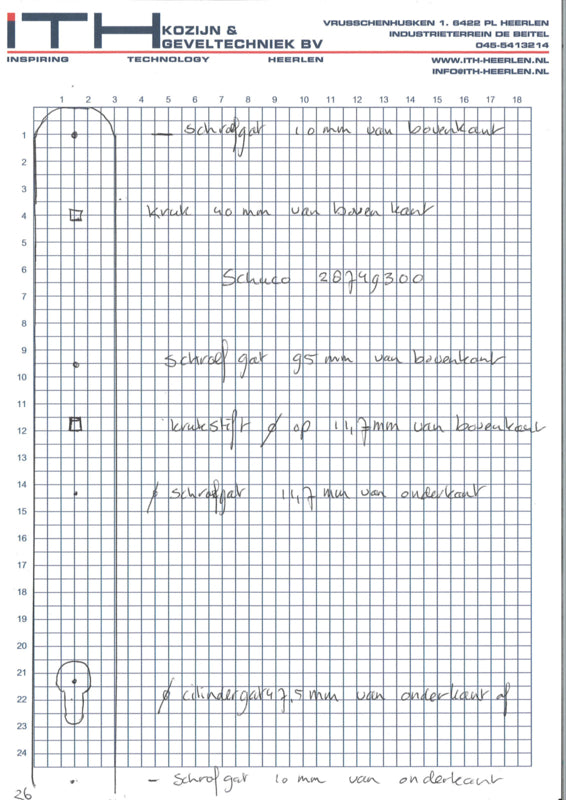 iTH KOZIJN & GEVELTECHNIEK BV
INSPIRING TECHNOLOGY HEERLEN
VRUSSCHENHUSKEN 1. 6422 PL HEERLEN
INDUSTRIETERREIN DE BEITEL
045-5413214
WWW.ITH-HEERLEN.NL
INFO@ITH-HEERLEN.NL
1 2 3 4 5 6 7 8 9 10 11 12 13 14 15 16 17 18
1 — schroefgat 10 mm van bovenkant
2
3
4 kruk 40 mm van boven kant
5
6 Schuco 28749300
7
8
9 schroef gat 95 mm van bovenkant
10
11
12 krukstift ∅ op 11,7mm van bovenkant
13
14 ∅ schroefgat 11,7 mm van onderkant
15
16
17
18
19
20
21
22 ∅ cilindergat 47,5 mm van onderkant af
23
24
- schrofgat 10 mm van onderkant
26